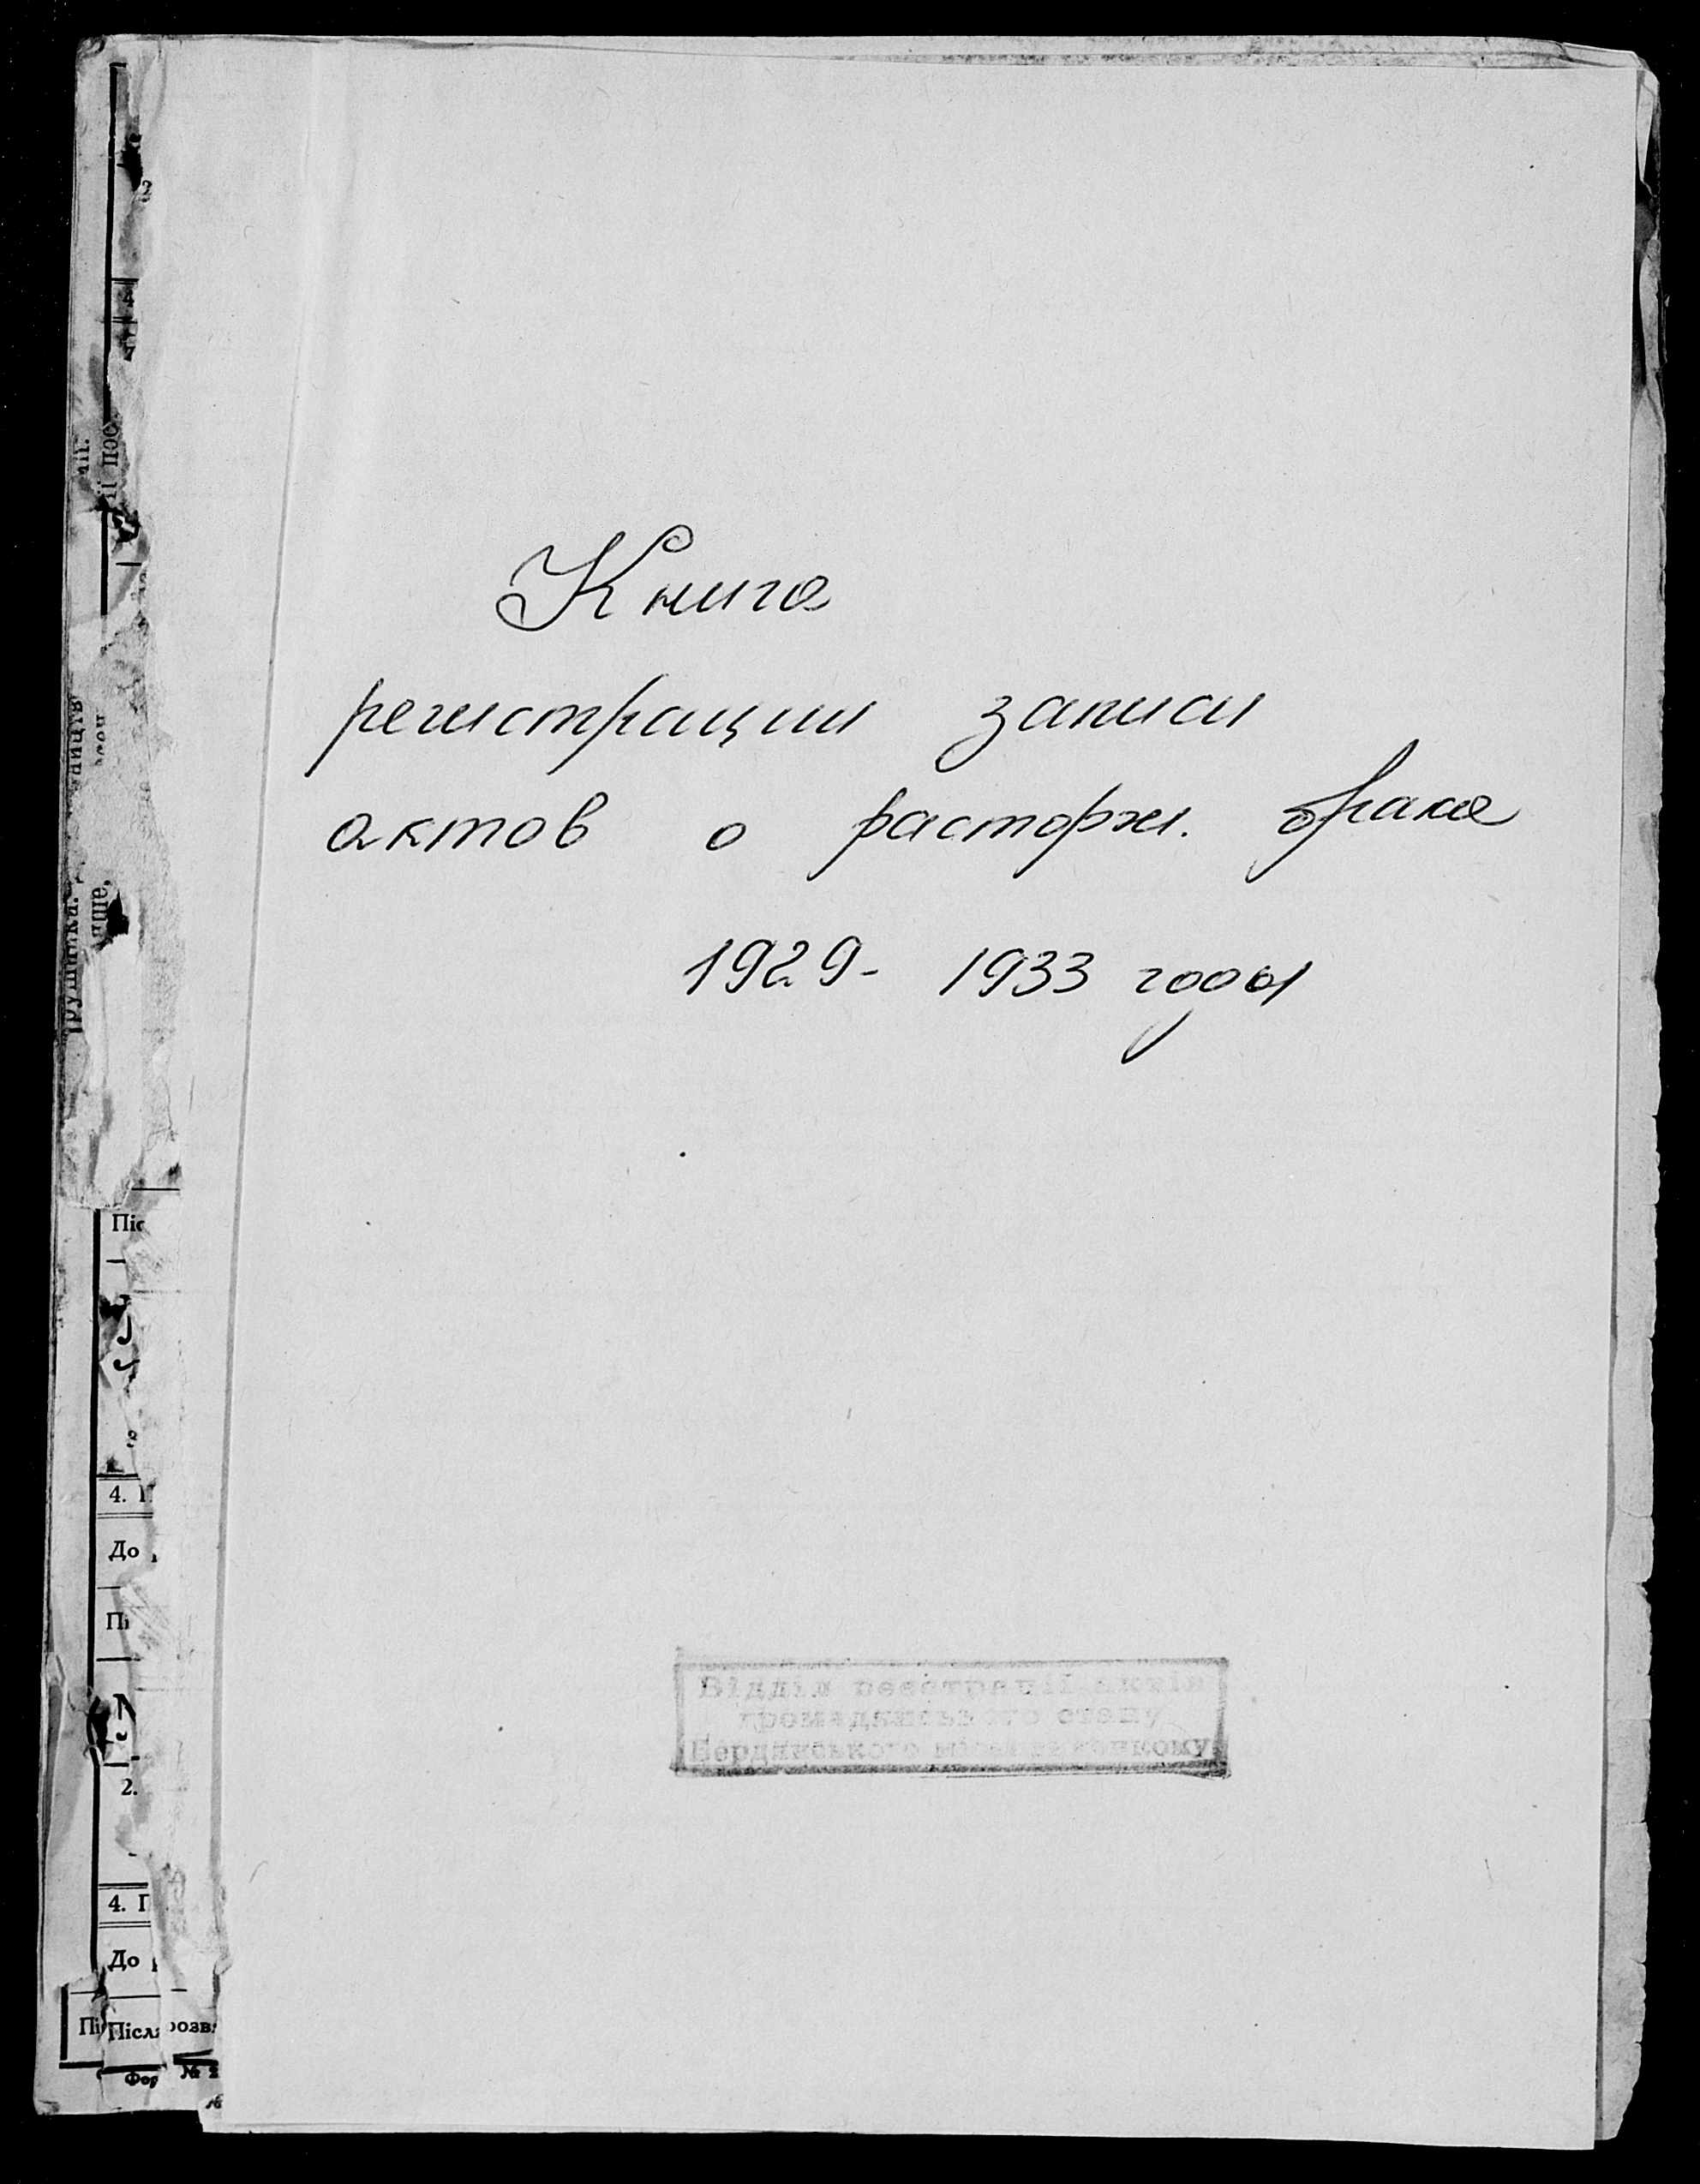 Книга
регистрации записи
актов о расторж. брака
1929- 1933 годы
Відділ реєстрації актів
громадянського стану
Бердянського міськвиконкому
Піс
4. П
До
Пі
2.
4. П
До
Піс
Післ
розв
Фор
№